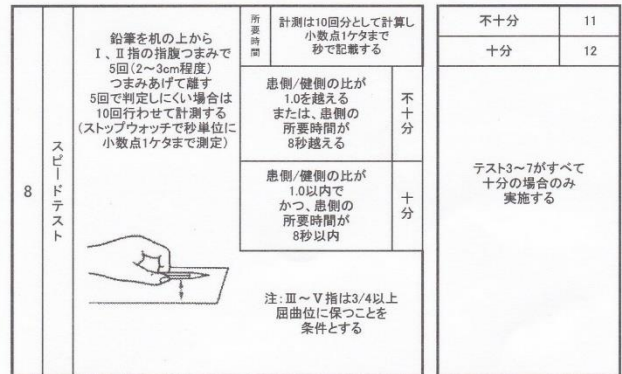 8
スピードテスト
鉛筆を机の上から
Ⅰ、Ⅱ指の指腹つまみで
5回(2～3cm程度)
つまみあげて離す
5回で判定しにくい場合は
10回行わせて計測する
(ストップウォッチで秒単位に
小数点1ケタまで測定)
所要時間
計測は10回分として計算し
小数点1ケタまで
秒で記載する
患側/健側の比が
1.0を越える
または、患側の
所要時間が
8秒越える
不十分
患側/健側の比が
1.0以内で
かつ、患側の
所要時間が
8秒以内
十分
注:Ⅲ～Ⅴ指は3/4以上
屈曲位に保つことを
条件とする
不十分
11
十分
12
テスト3～7がすべて
十分の場合のみ
実施する